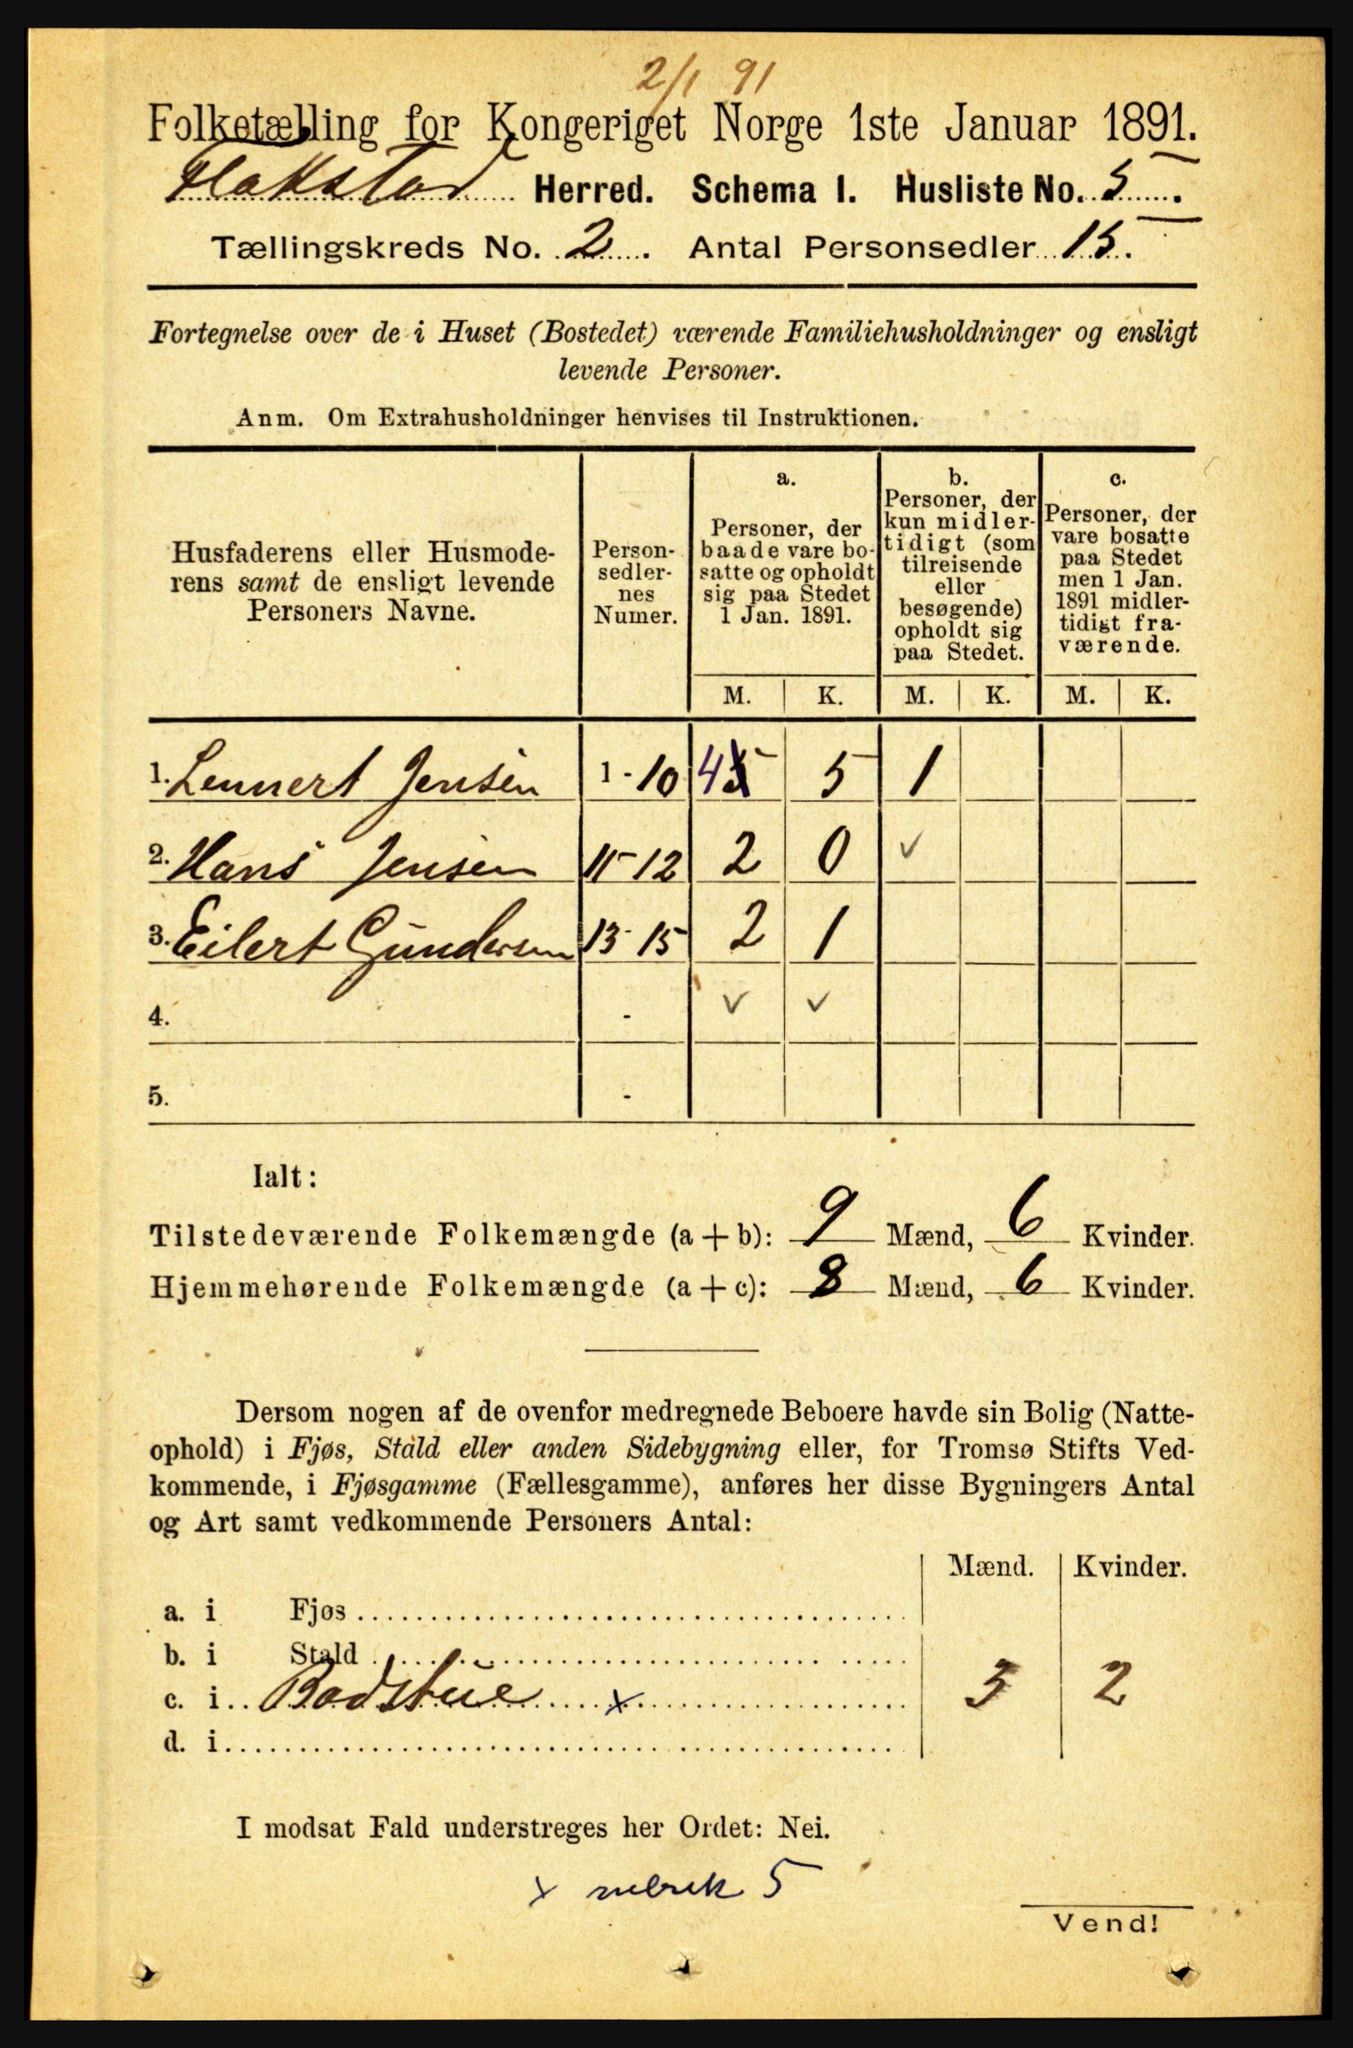 2/1 91
Folketælling for Kongeriget Norge 1ste Januar 1891.
Flakstad Herred. Schema I. Husliste No. 5.
Tællingskreds No. 2. Antal Personsedler 15.
Fortegnelse over de i Huset (Bostedet) værende Familiehusholdninger og ensligt
levende Personer.
Anm. Om Extrahusholdninger henvises til Instruktionen.
Husfaderens eller Husmode-
rens samt de ensligt levende
Personers Navne.
Person-
sedler-
nes
Numer.
a.
Personer, der
baade vare bo-
satte og opholdt
sig paa Stedet
1 Jan. 1891.
b.
Personer, der
kun midler-
tidigt (som
tilreisende
eller
besøgende)
opholdt sig
paa Stedet.
c.
Personer, der
vare bosatte
paa Stedet
men 1 Jan.
1891 midler-
tidigt fra-
værende.
M. K. M. K. M. K.
1. Lennert Jensen 1 - 10 4 5 5 1
2. Hans Jensen 11 - 12 2 0 ✓
3. Eilert Gundersen 13 - 15 2 1
4. - ✓ ✓
5. -
Ialt:
Tilstedeværende Folkemængde (a + b): 9 Mænd, 6 Kvinder.
Hjemmehørende Folkemængde (a + c): 8 Mænd, 6 Kvinder.
Dersom nogen af de ovenfor medregnede Beboere havde sin Bolig (Natte-
ophold) i Fjøs, Stald eller anden Sidebygning eller, for Tromsø Stifts Ved-
kommende, i Fjøsgamme (Fællesgamme), anføres her disse Bygningers Antal
og Art samt vedkommende Personers Antal:
Mænd. Kvinder.
a. i Fjøs
b. i Stald
c. i Badstue x 3 2
d. i
I modsat Fald understreges her Ordet: Nei.
x rubrik 5
Vend!